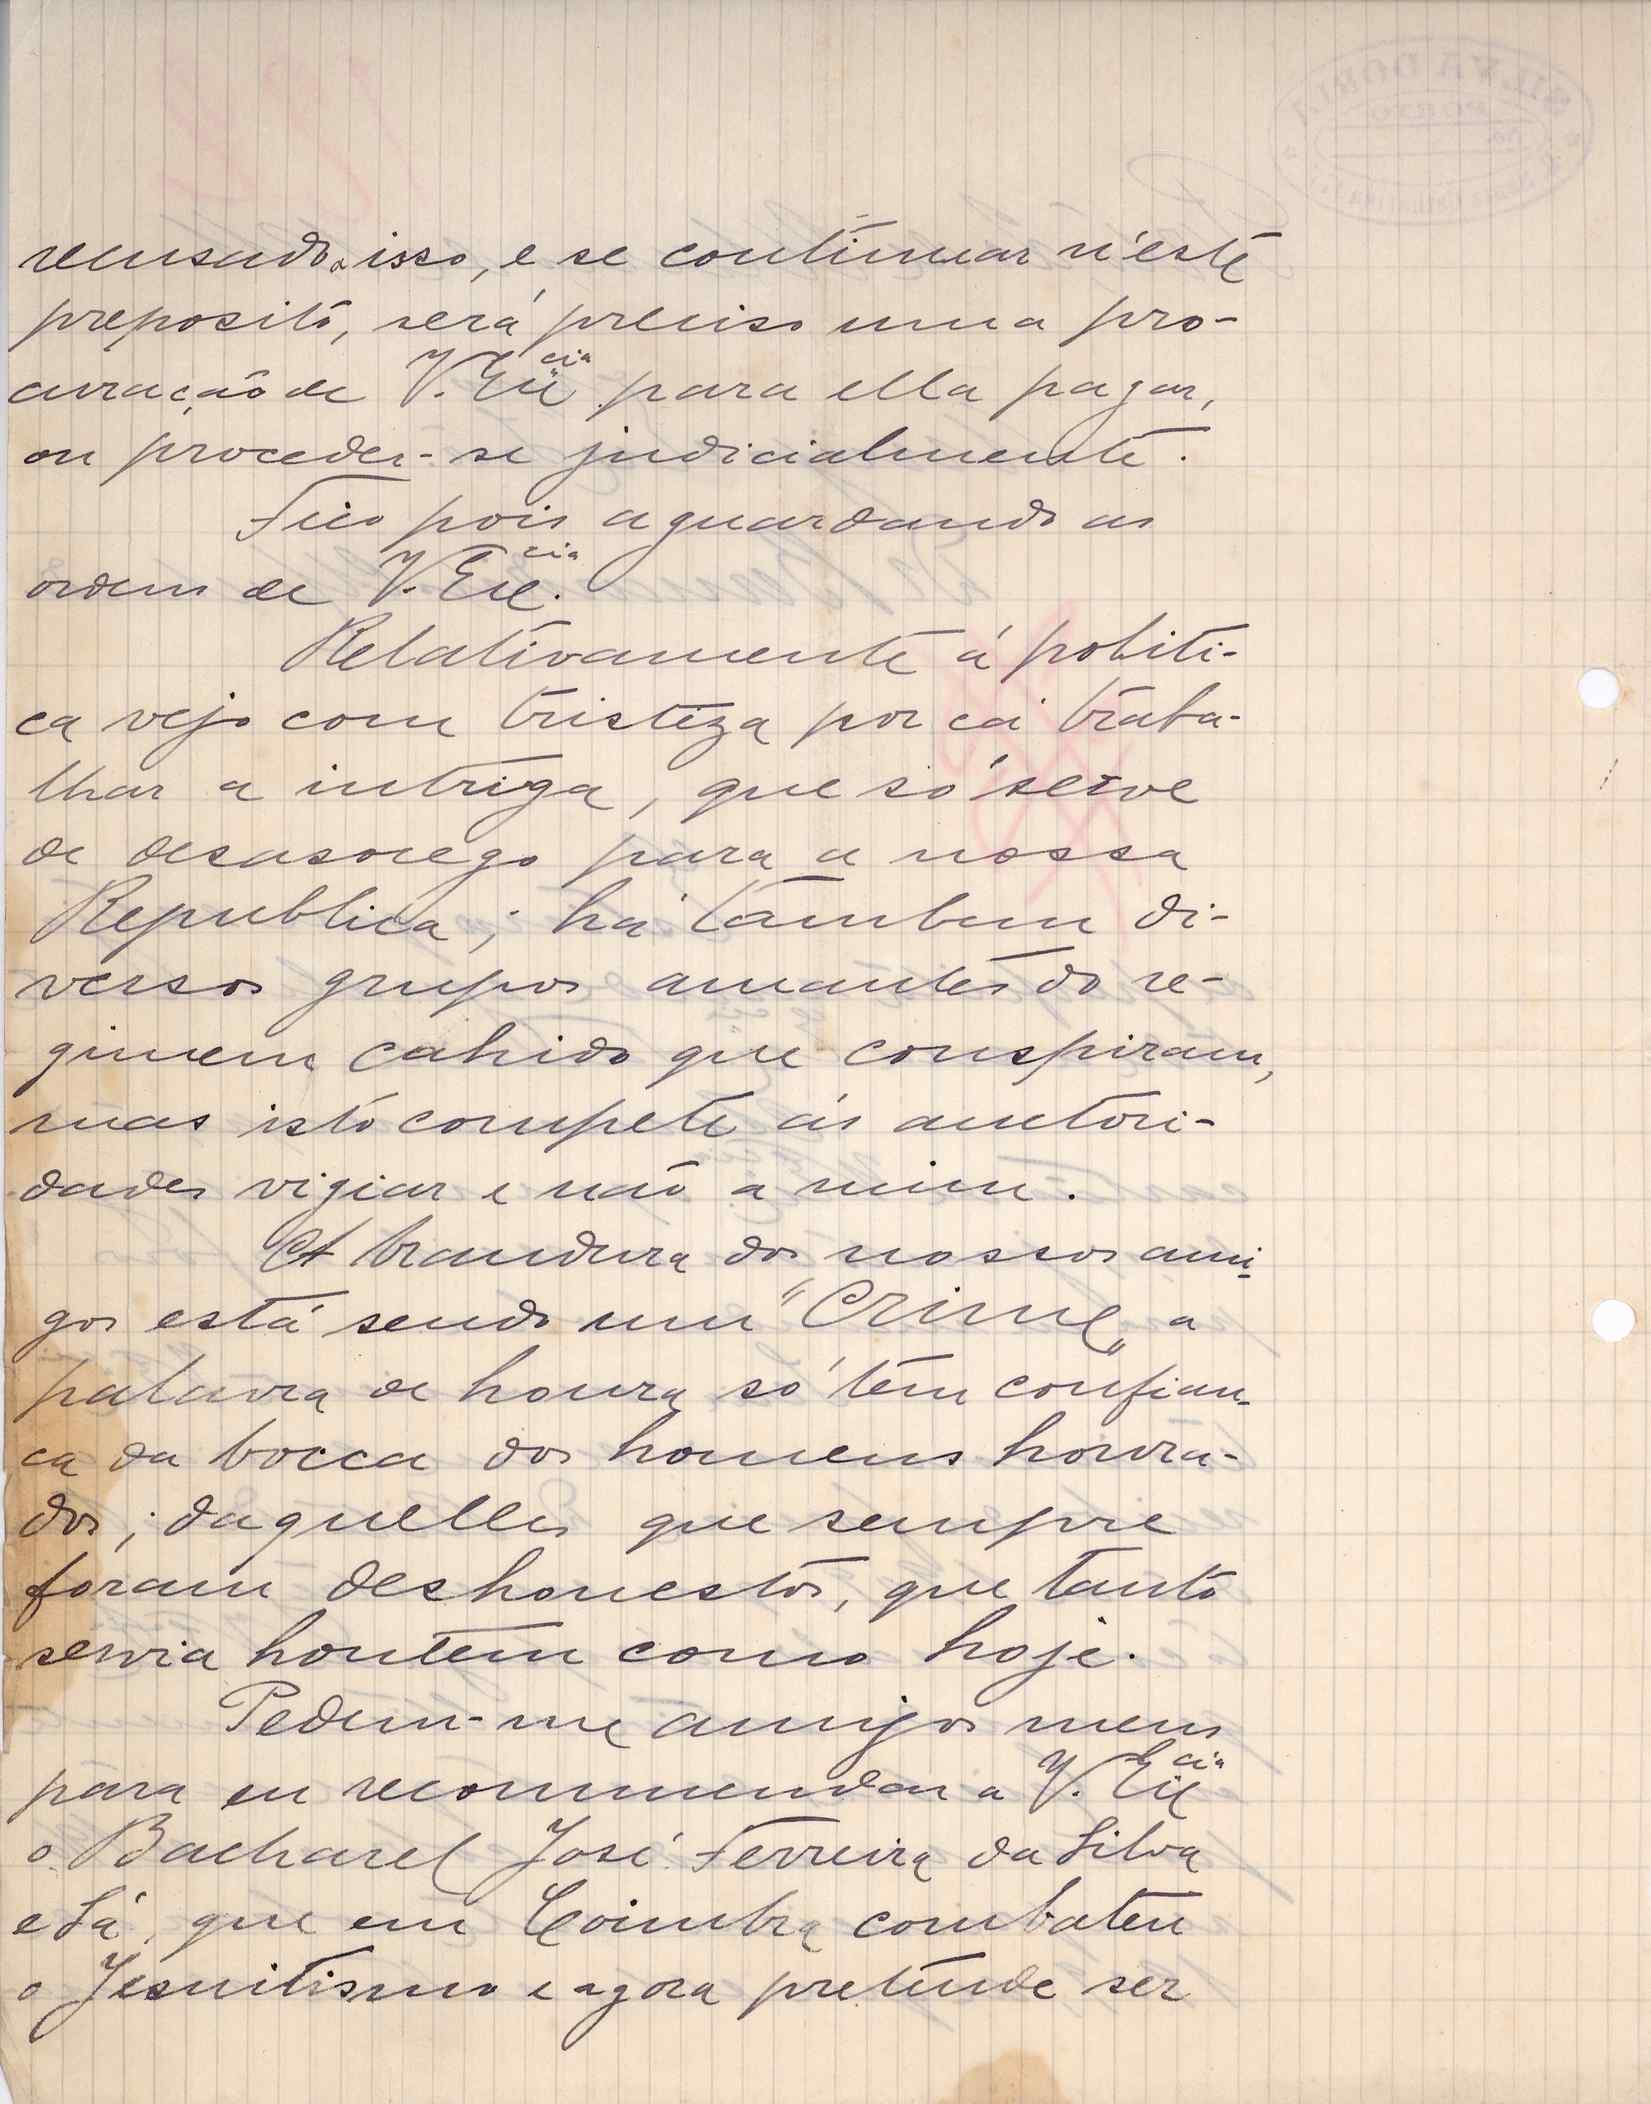 recusado a isso, e se continuar n'este
preposito, será preciso uma pro-
curação de V. Exc.cia para ella pagar,
ou proceder-se judicialmente.
Fico pois aguardando as
ordens de V. Exc.cia
Relativamente á politi-
ca vejo com tristeza por cá traba-
lhar a intriga, que só serve
de desasocego para a nossa
Republica; há tambem di-
versos grupos amantes do re-
gimem cahido que conspiram,
mas isto compete ás auctori-
dades vigiar e não a mim.
A brandura dos nossos ami-
gos está sendo um "Crime" a
palavra de honra só têm confian-
ca da bocca dos homens honra-
dos; daquelles que sempre
foram deshonestos, que tanto
servia hontem como hoje.
Pedem-me amigos meus
para eu recommendar a V. Exc.cia
o Bacharel José Ferreira da Silva
e Sá, que em Coimbra combateu
o Jesuitismo e agora pretende ser
SILVA DORIA
PORTO